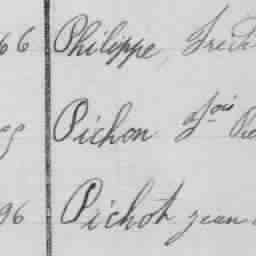 66 Philippe, Frédé
Pichon Fois Pie
96 Pichot jean